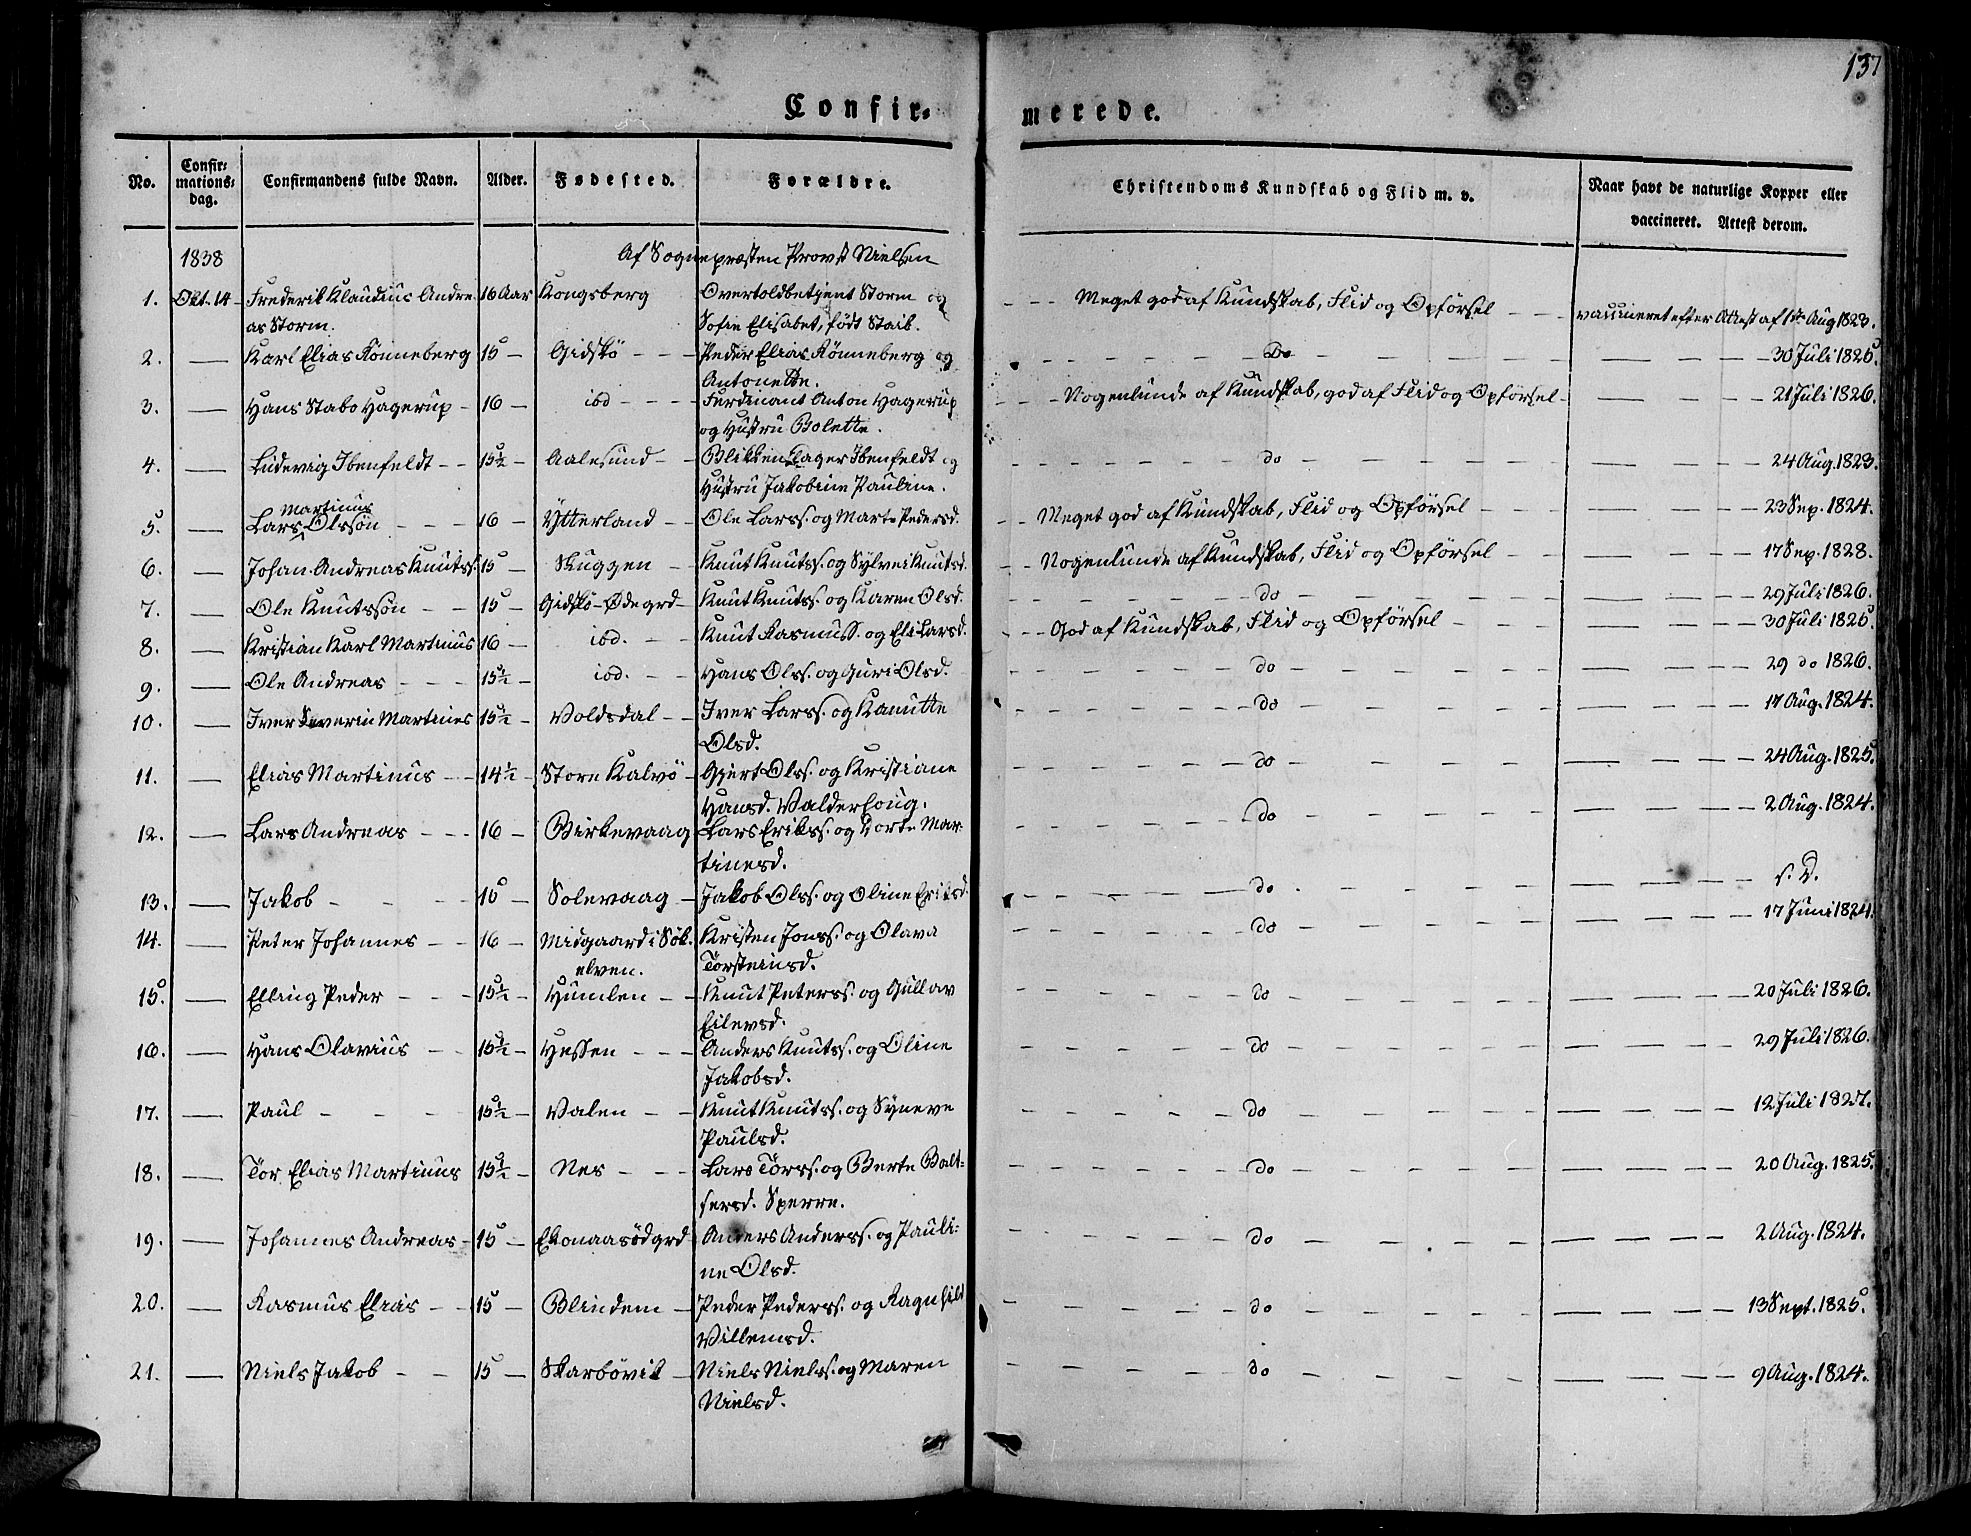 137
Confir= merede.
No. Confir= mations= dag. Confirmandens fulde Navn. Alder. Fødested. Forældre. Christendoms Kundskab og Flid m. v. Naar havt de naturlige Kopper eller vaccineret. Attest derom.
1838 Af Sognepræsten Provst Nielsen
1. Okt. 14 Frederik Klaudius Andre 16 Aar Kongsberg Overtoldbetjent Storm og - - - Meget god af Kundskab, Flid og Opførsel - - vaccineret efter Attest af 1ste Aug 1823.
as Storm. Sofie Elisabet, født Staib.
2. — Karl Elias Rønneberg 15 — Gidskö - - - Peder Elias Rønneberg og Do 30 Juli 1825.
Antonette.
3. — Hans Stabo Hagerup - 16 — ibd - - - Ferdinant Anton Hagerup - - - Nogenlunde af Kundskab, god af Flid og Opførsel - 21 Juli 1826.
og Hustru Bolette.
4. — Ludevig Ibenfeldt - - 15½ - Aalesund - - Blikkenslager Ibenfeldt og do 24 Aug. 1823.
Hustru Jakobine Pauline.
Martinus
5. — Lars Olssøn - - - 16 - Ytterland - - Ole Larss. og Marte Pedersd. - - Meget god af Kundskab, Flid og Opførsel - - - 23 Sep. 1824.
6. — Johan Andreas Knutss. 15 - Skuggen - Knut Knutss. og Sylvei Knutsd. - - Nogenlunde af Kundskab, Flid og Opførsel - - 17 Sep. 1828.
7. — Ole Knutssøn - - 15 - Gidskö-Ødegrd - Knut Knutss. og Karen Olsd. do 29 Juli 1826.
8. — Kristian Karl Martinus 16 - ibd. - - Knut Rasmuss. og Eli Larsd. - - - God af Kundskab, Flid og Opförsel - - - 30 Juli 1825.
9. — Ole Andreas - - - 15½ - ibd. - - Hans Olss. og Guri Olsd. do 29 do 1826.
10. — Iver Severin Martines 15½ - Voldsdal - - Iver Larss. og Kanutte do 17 Aug. 1824.
Olsd.
11. — Elias Martinus - - 14½ - Store Kalvö - Gjert Olss. og Kristiane do 24 Aug. 1825.
Hansd. Valderhoug.
12. — Lars Andreas - - - 16 - Birkevaag Lars Eriks. og Dorte Mar do 2 Aug. 1824.
tinesd.
13. — Jakob - - - - 15 - Solevaag - Jakob Olss. og Oline Eriksd. do s. D.
14. — Peter Johannes - - 16 - Midgaard i Sök. Kristen Jonss. og Olava do 17 Juni 1824.
elven. Torsteinsd.
15. — Elling Peder - - - 15½ - Humlen - - Knut Peterss. og Gullav do 20 Juli 1826.
Eilersd.
16. — Hans Olavius - - 15½ - Hessen - - - Anders Knutss. og Oline do 29 Juli 1826.
Jakobsd.
17. — Paul - - - 15½ - Valen - - Knut Knutss. og Syneve do 12 Juli 1827.
Paulsd.
18. — Tor Elias Martinus 15½ - Nes - - - Lars Torss. og Berte Balt= do 20 Aug. 1825.
sersd. Sperre.
19. — Johannes Andreas - 15 - Ekonaasödgrd Anders Anderss. og Pauli= do 2 Aug. 1824.
ne Olsd.
20. — Rasmus Elias - - 15 - Blindem - Peder Peders. og Ragnhild do 13 Sept. 1825.
Villemsd.
21. — Niels Jakob - - 15 - Skarbövik - Niels Nielss. og Maren do 9 Aug. 1824.
Nielsd.